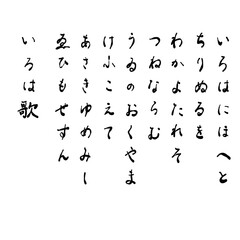 いろはにほへと
ちりぬるを
わかよたれそ
つねならむ
うゐのおくやま
けふこえて
あさきゆめみし
ゑひもせすん
いろは歌